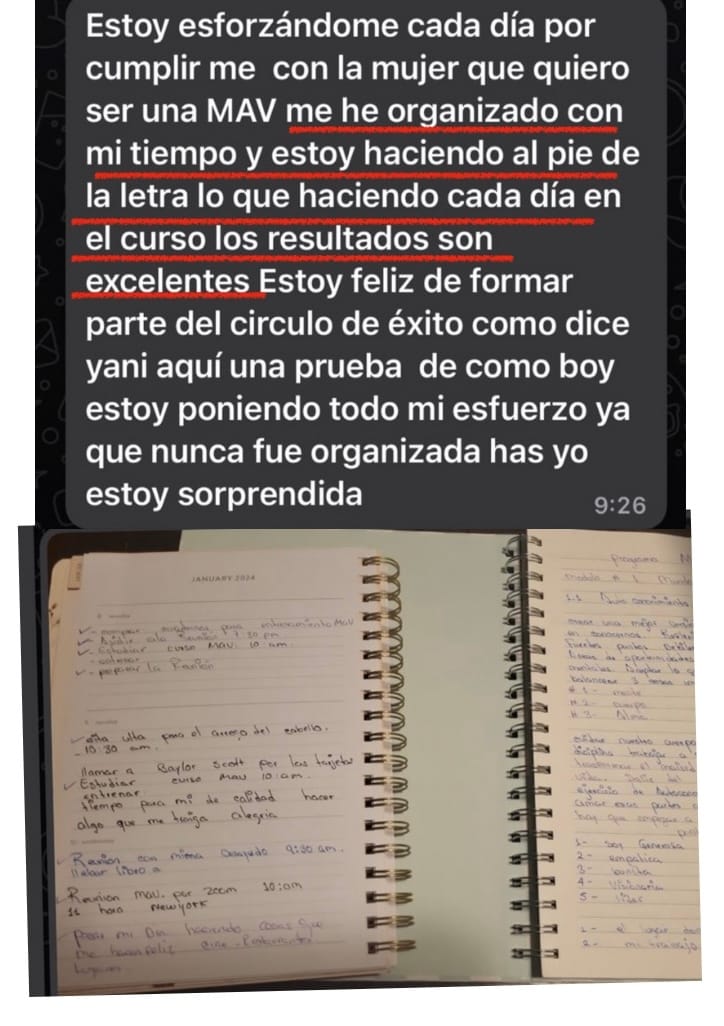 Estoy esforzándome cada día por
cumplir me con la mujer que quiero
ser una MAV me he organizado con
mi tiempo y estoy haciendo al pie de
la letra lo que haciendo cada día en
el curso los resultados son
excelentes Estoy feliz de formar
parte del circulo de éxito como dice
yani aquí una prueba de como boy
estoy poniendo todo mi esfuerzo ya
que nunca fue organizada has yo
estoy sorprendida
9:26
JANUARY 2024
para entrenamiento MAV
7:30 pm
Estudiar curso MAV. 10 am
- entrenar
- preparar la Reunión
cita para el arreglo del cabello.
- 10:30 am.
llamar a Baylor Scott por las tarjetas
Estudiar curso MAV 10:am.
entrenar
tiempo para mi de calidad hacer
algo que me traiga alegria
Reunion con mima 9:30 am.
llevar libro
Reunion MAV. por zoom 10:am
11 hora New York
Pasar mi Dia haciendo cosas que
me hacen feliz cine - Restaurantes
lugares
Programa M
modulo # 1
1.1
# 1 - mente
# 2 - cuerpo
# 3 - Alma
1- soy Generosa
2- empatica
3- bonita
4- visionaria
5- lider
1- el hogar
2- mi trabajo